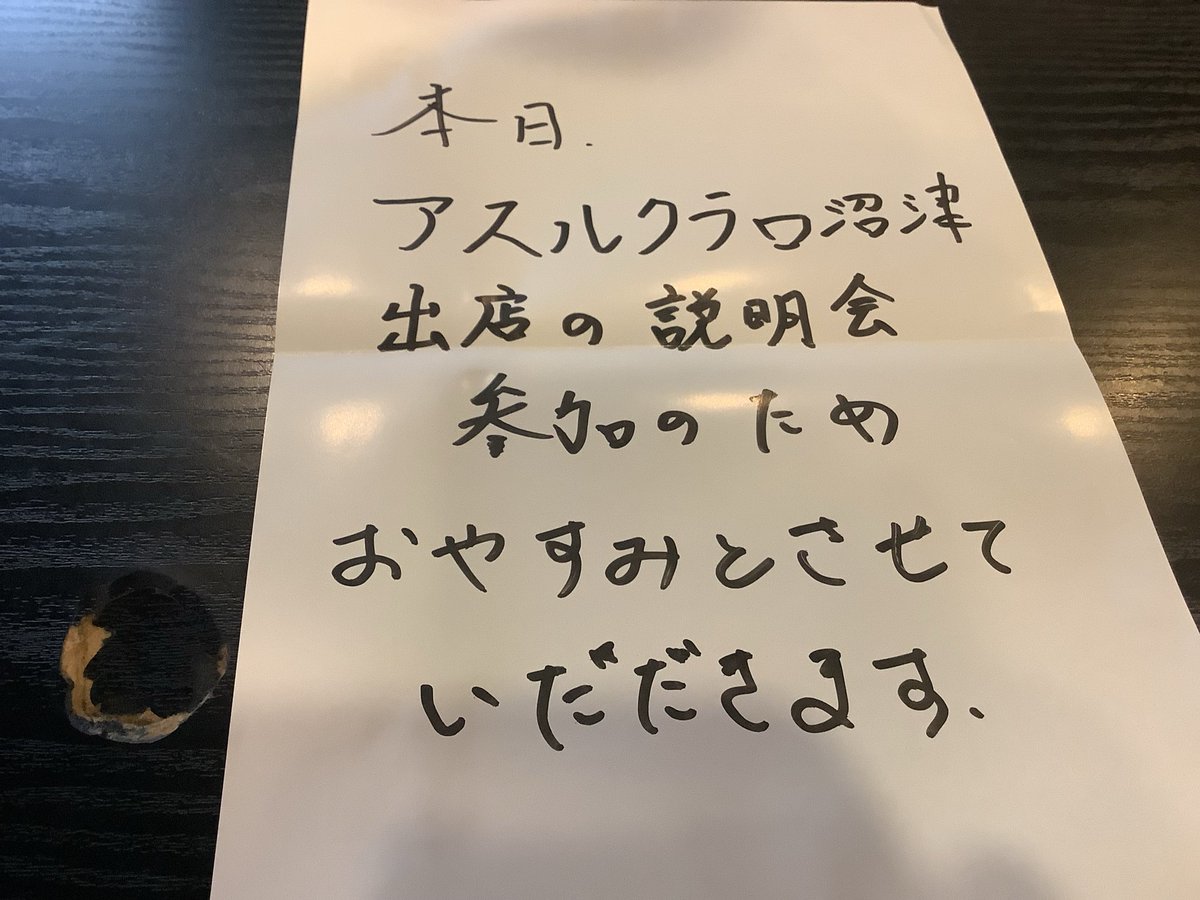 本日.
アスルクラロ沼津
出店の説明会
参加のため
おやすみとさせて
いだだきます.